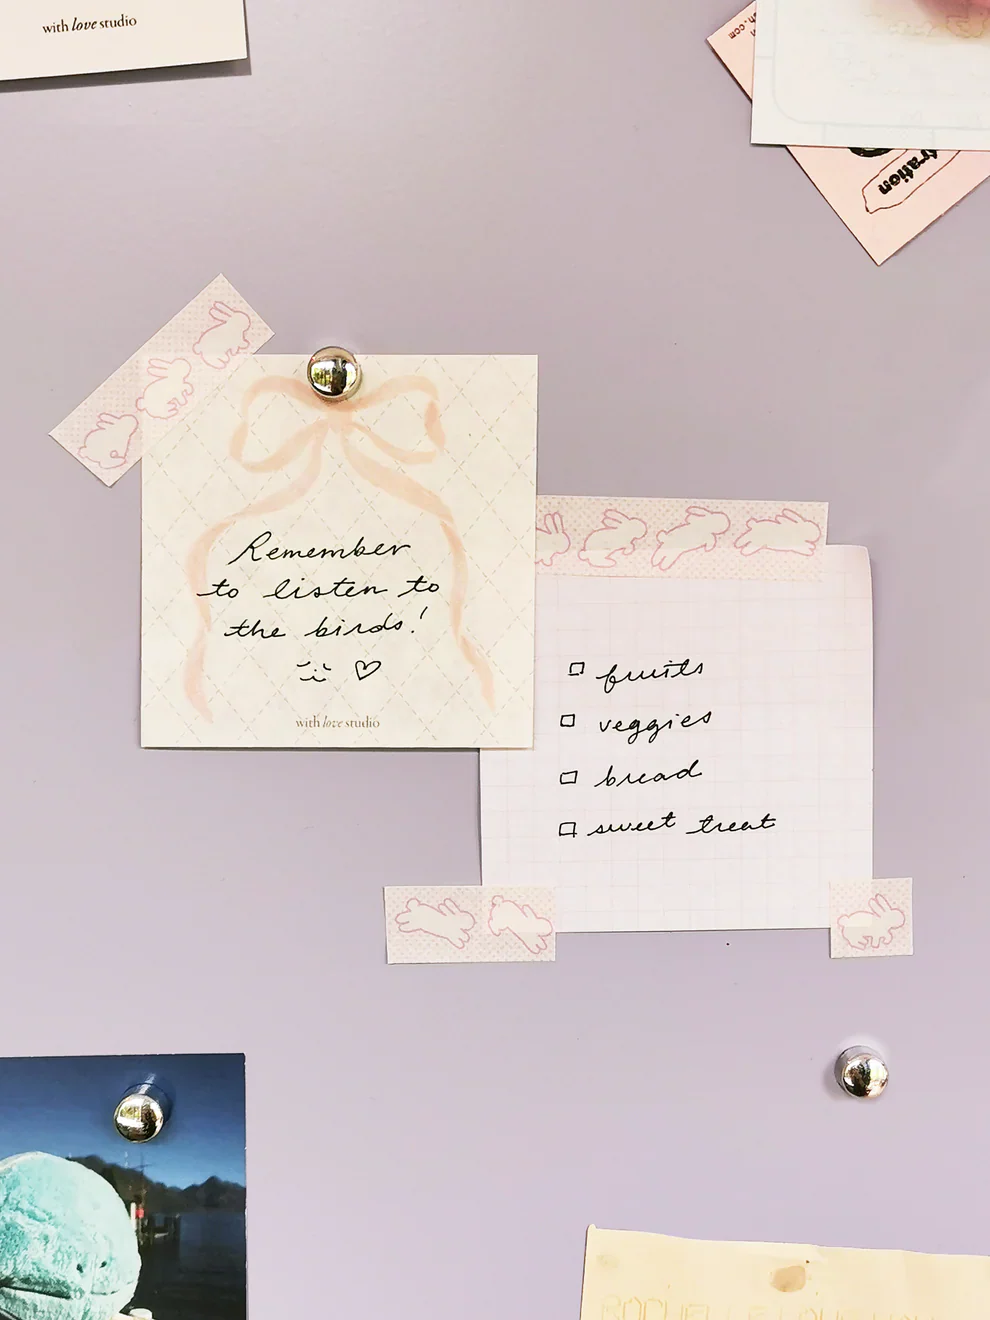 with love studio
sh.com
tration
Remember
to listen to
the birds!
with love studio
fruits
veggies
bread
sweet treat